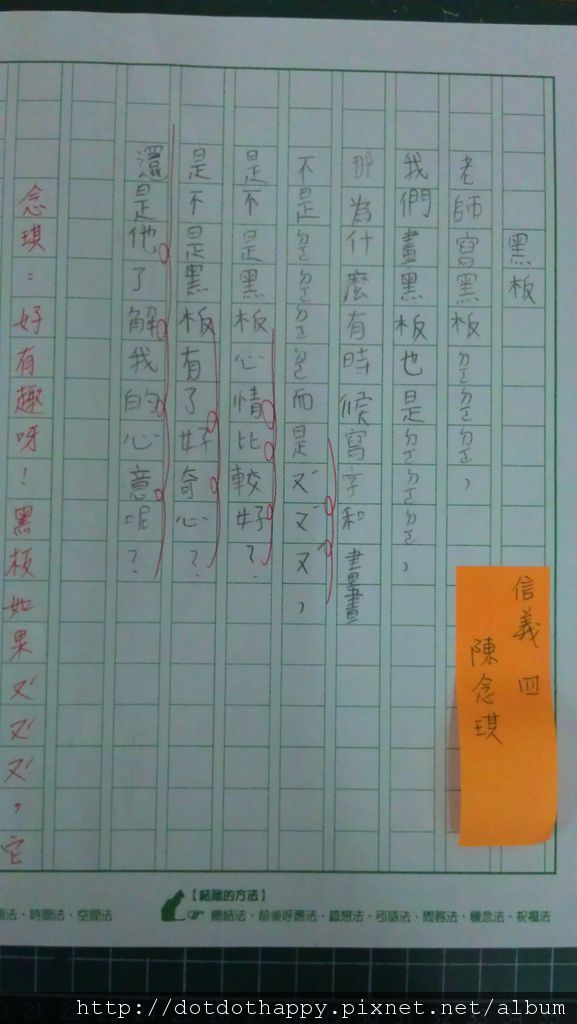 信義四
陳念琪
黑板
老師寫黑板ㄉㄛㄉㄛㄉㄛ,
我們畫黑板也是ㄉㄛㄉㄛㄉㄛ,
那為什麼有時候寫字和畫畫
不是ㄉㄛㄉㄛㄉㄛㄉㄛ而是ㄡˊㄡˊㄡˊ,
是不是黑板心情比較好?
是不是黑板有了好奇心?
還是他了解我的心意呢?
念琪:好有趣呀!黑板如果ㄡˊㄡˊㄡˊ,它
【結尾的方法】
總結法、前後呼應法、感想法、引語法、問答法、懸念法、祝福法
法、時間法、空間法
http://dotdothappy.pixnet.net/album